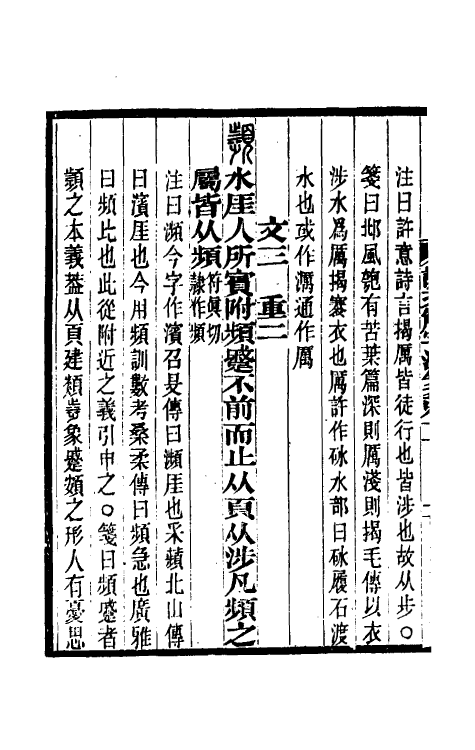 注曰許意詩言揭厲皆徒行也皆涉也故从步〇
箋曰邶風匏有苦葉篇深則厲淺則揭毛傳以衣
涉水爲厲揭褰衣也厲許作砅水部曰砅履石渡
水也或作濿通作厲
文二　重二
水厓人所賓附頻蹙不前而止从頁从涉凡頻之
屬皆从頻符眞切隸作頻
注曰瀕今字作濱召旻傳曰瀕厓也采蘋北山傳
曰濱厓也今用頻訓數考桑柔傳曰頻急也廣雅
曰頻比也此從附近之義引申之〇箋曰頻蹙者
顰之本義葢从頁建類㠭象蹙頞之形人有憂思